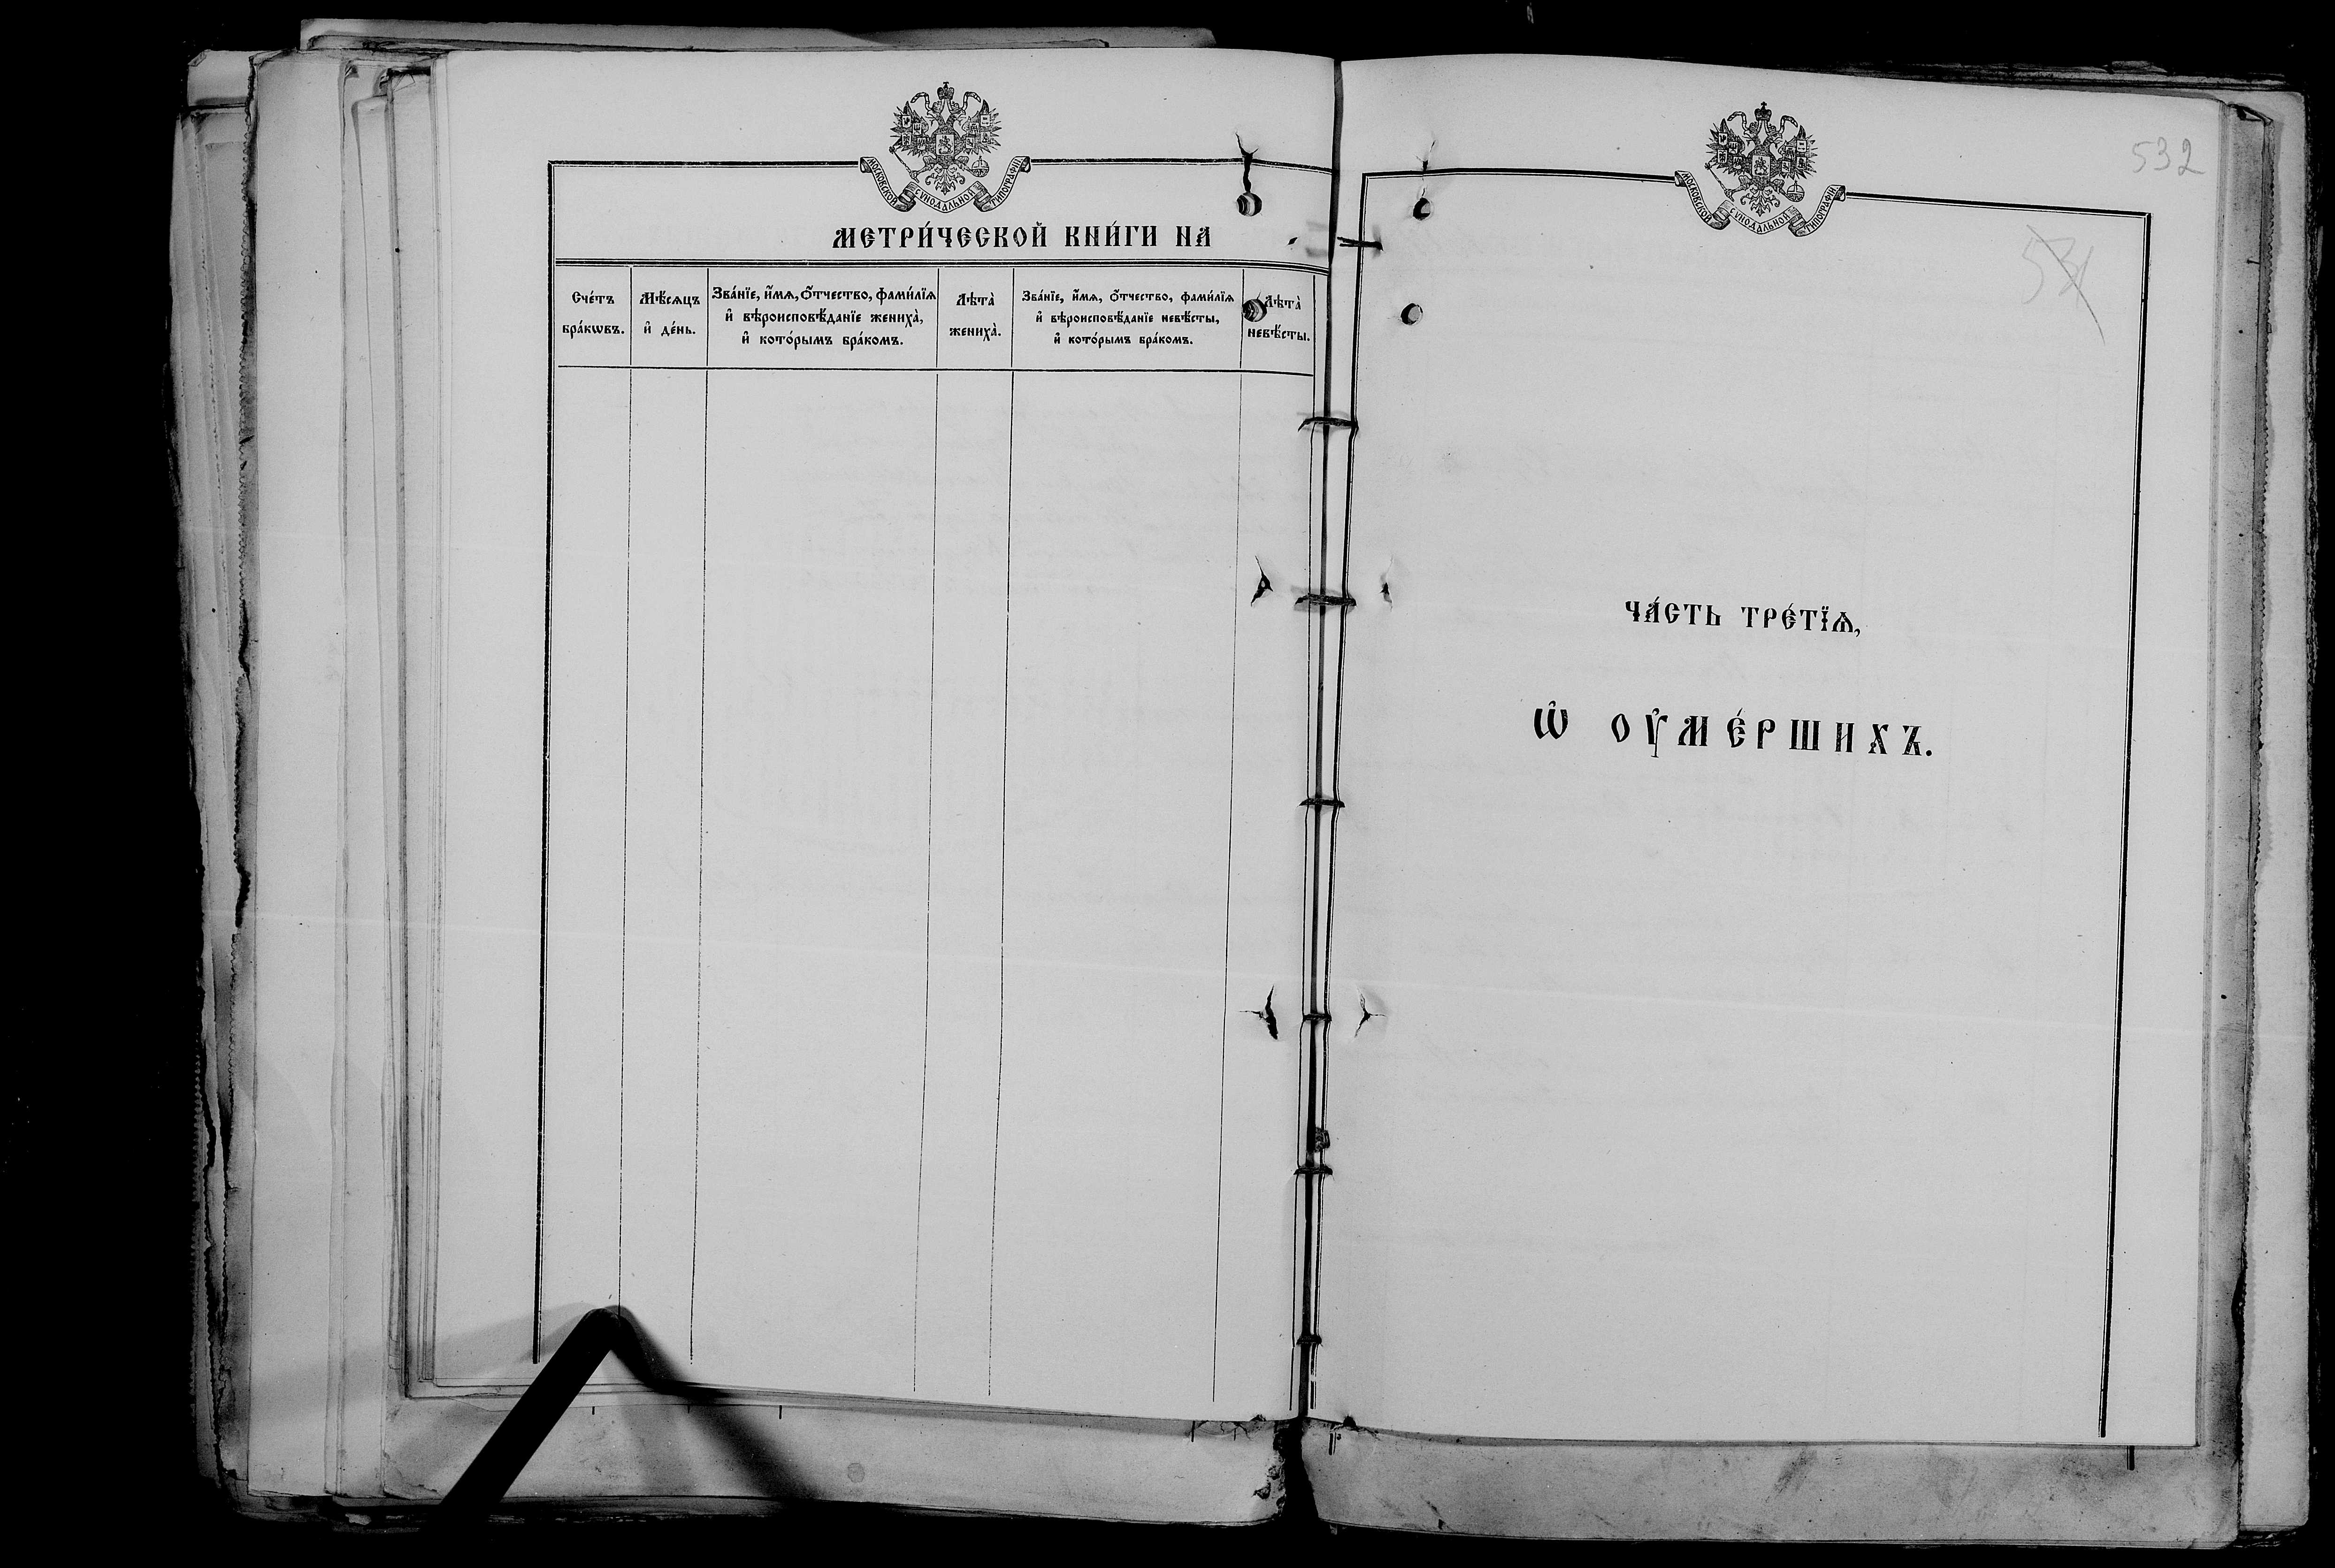 МОСКОВСКОЙ СѴНОДАЛЬНОЙ ТИПОГРАФІИ
МЕТРИ́ЧЕСКОЙ КНИ́ГИ НА
Сче́тъ
бра́кѡвъ.
Мѣ́сѧцъ
и҆ де́нь.
Зва́нїе, и҆́мѧ, ѻ҆́тчество, фами́лїѧ
и҆ вѣроисповѣ́данїе жениха̀,
и҆ кото́рымъ бра́комъ.
Лѣта̀
жениха̀.
Зва́нїе, и҆́мѧ, ѻ҆́тчество, фами́лїѧ
и҆ вѣроисповѣ́данїе невѣ́сты,
и҆ кото́рымъ бра́комъ.
Лѣта̀
невѣ́сты.
532
МОСКОВСКОЙ СѴНОДАЛЬНОЙ ТИПОГРАФІИ
531
ЧА́СТЬ ТРЕ́ТЇѦ,
Ѡ҆ ОУ҆МЕ́РШИХЪ.